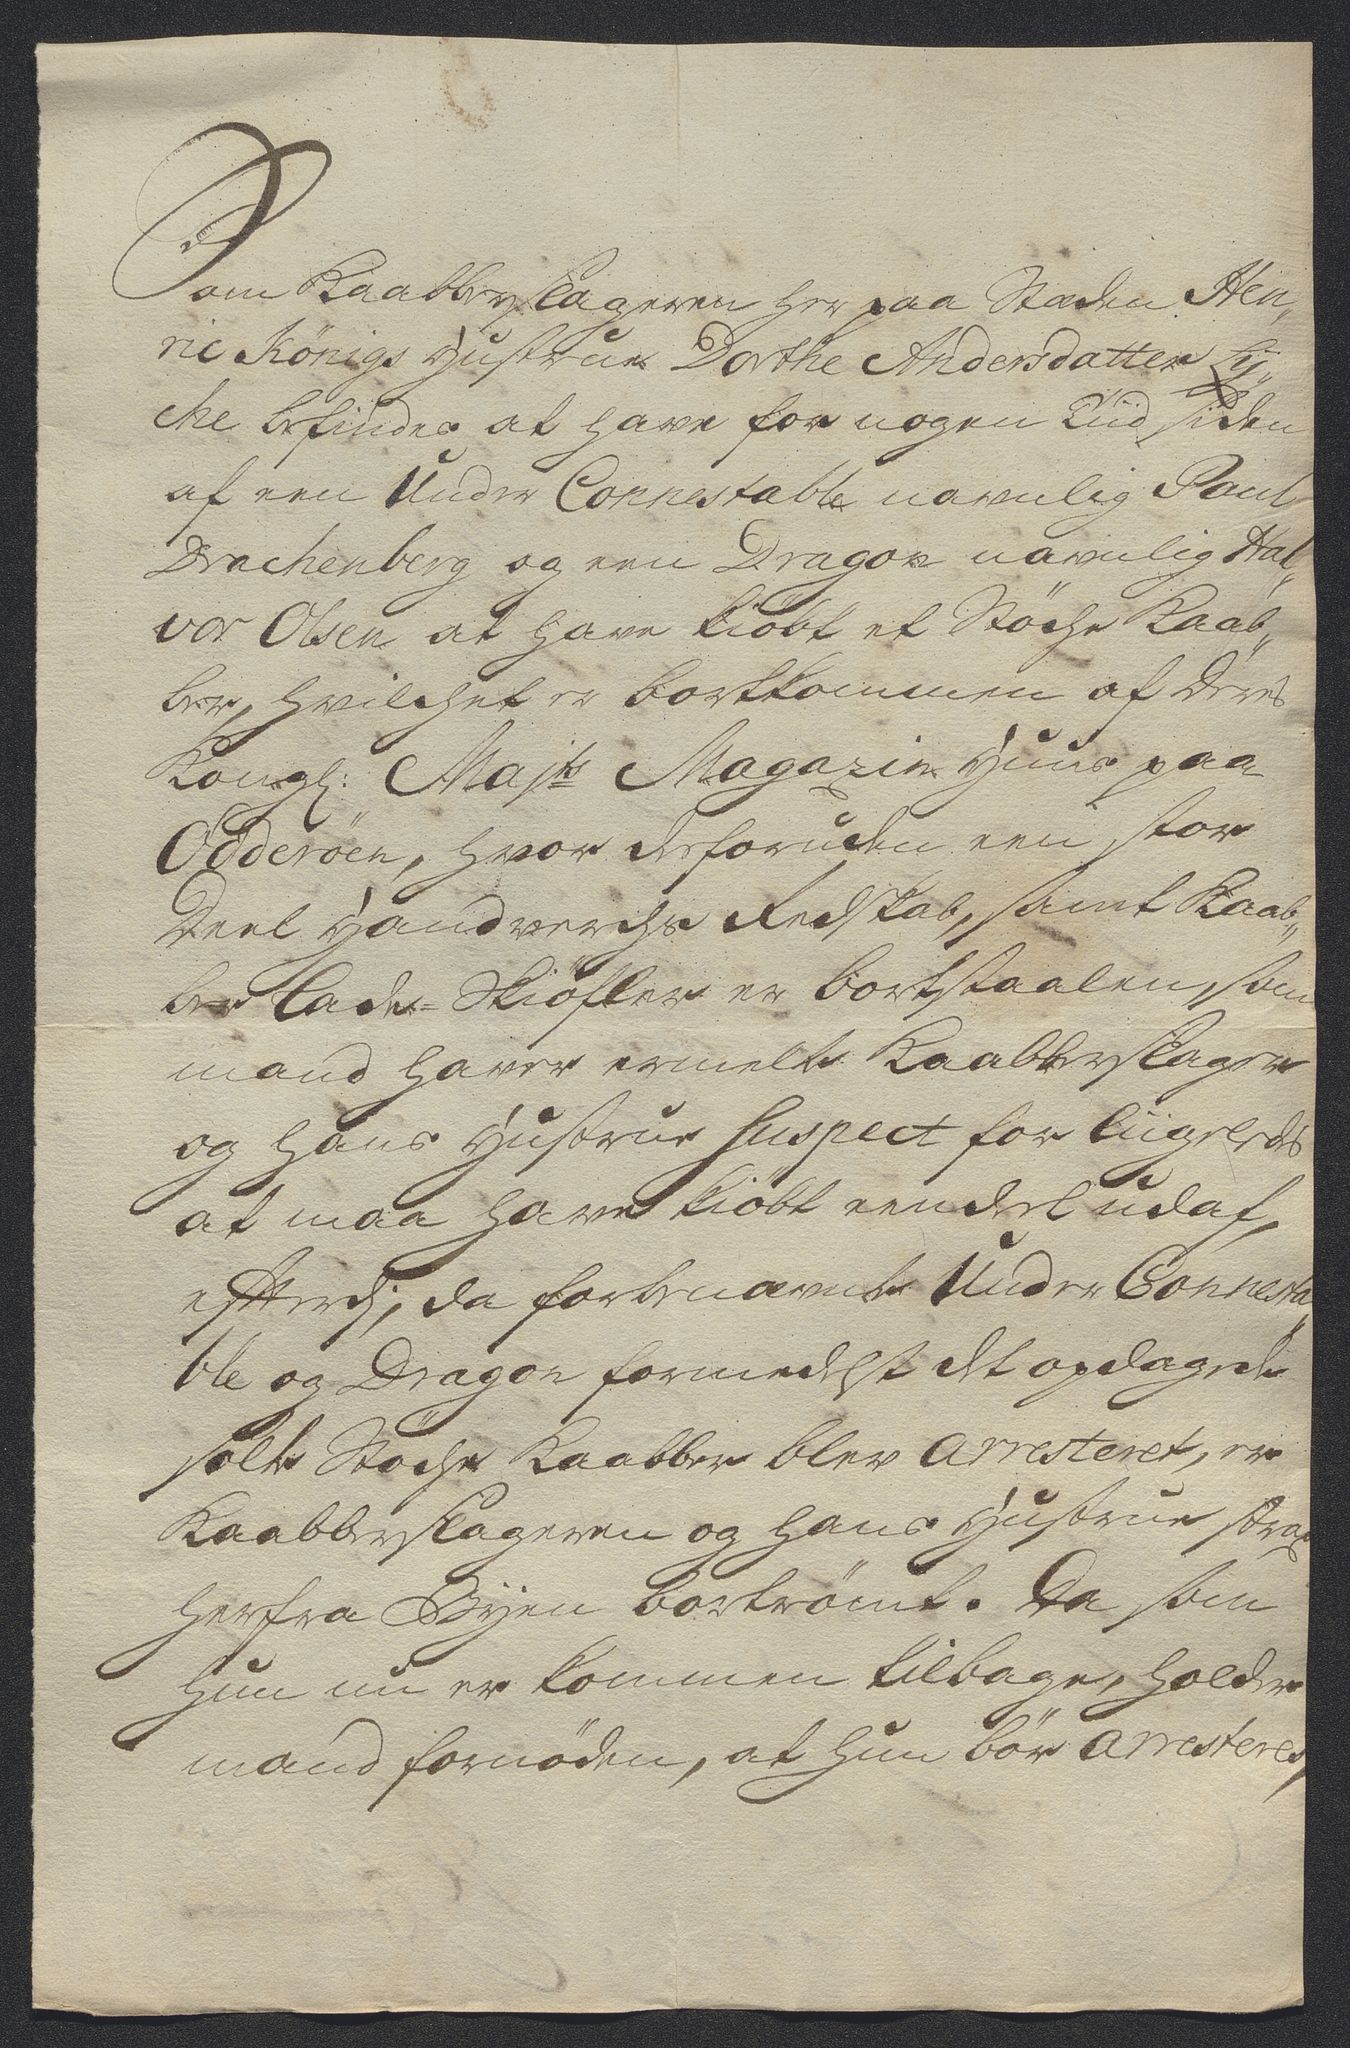 Som Kaabberslageren her paa Stæden Hen„
ric Königs Hustrue Dorthe Andersdatter Ly„
che befindes at have for nogen Tiid siden
af een Under Connestable navnlig Poul
Drachenberg og een Dragon navnlig Hal„
vor Olsen at have kiöbt et Stöche Kaab„
ber, hvilchet er bortkommen af Deres
Kongl: Majts Magazin Huus paa
Odderöen, hvor desforuden een stor
Deel Handverchs Redskab, samt Kaab„
ber Lade-Skiöfler er bortstaalen, som
mand haver ermelte Kaabberslager
og hans Hustrue Suspect for liigeledes
at maa have kiöbt eendeel udaf,
efterdj, da forbenævnte Under Connesta„
ble og Dragon formedelst det opdagede
solte Stöche Kaabber blev arresteret, er
Kaabberslageren og hans Hustrue strax
herfra Byen bortrömt. Da som
hun nu er kommen tilbage, holder
mand fornöden, at hun bör arresteres,